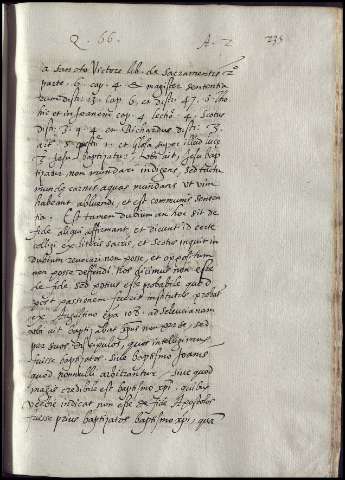 Q. 66. A. 2 235
a sancto Victore lib. de sacramentis 2ª
parte. 6. cap. 4. et magister sententia
rum dist. 13. cap. 6. et dist. 47.
in Joanem cap. 4. lect. 4. Scotus
dist. 3. q. 4. et Richardus dist. 3.
art. 5. 1. et Glosa super illud Luce
3. Jesu baptizato. ubi ait, Jesu bap
tizatur, non mundari indigens, sed tactu
munde carnis aquas mundans ut vim
habeant abluendi, et est communis senten
tia. Est tamen dubium an hoc sit de
fide aliqui affirmant, et dicunt id certe
colligi ex literis sacris, et Scotus inquit in
dubium revocari non posse, et oppositum
non posse deffendi. Nos dicimus non esse
de fide sed potius esse probabile quod
post passionem fuerit institutus probat
ex Augustino epª 108. ad seleucianam
ubi ait baptizabat xpus non per se, sed
per suos discipulos, quos intelligimus
fuisse baptizatos. sive baptismo Joanis
quod nonnulli arbitrantur, sive quod
magis credibile est baptismo xpi, quibus
verbis indicat non esse de fide Apostolos
fuisse prius baptizatos baptismo xpi, quam